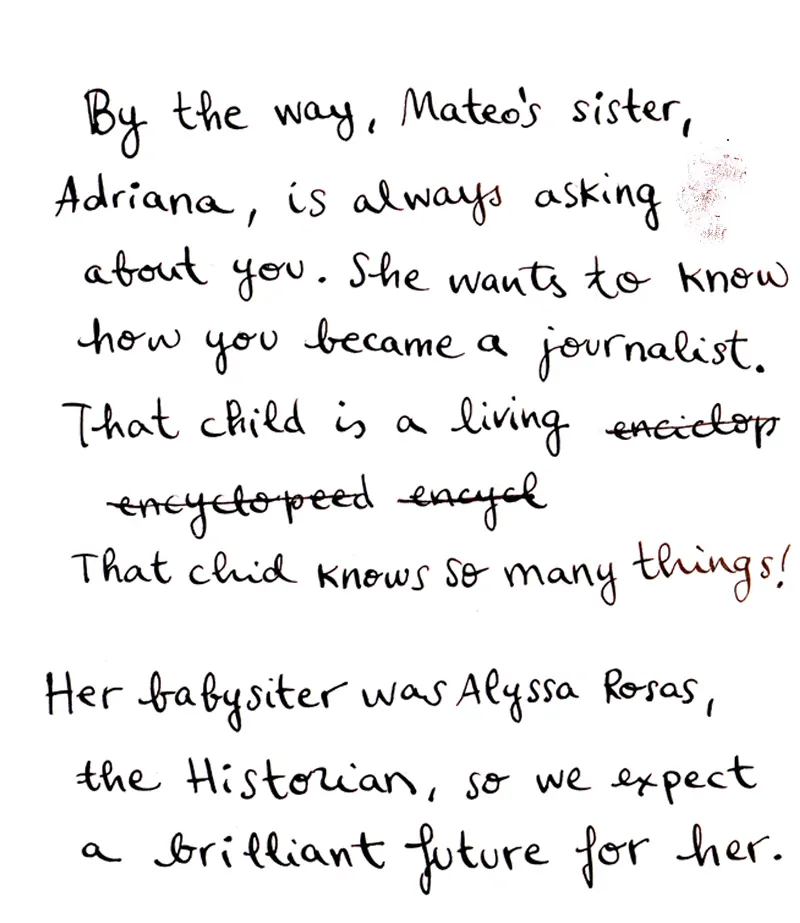 By the way, Mateo's sister,
Adriana, is always asking
about you. She wants to know
how you became a journalist.
That child is a living enciclop
encyclopeed encycl
That chid knows so many things!
Her babysiter was Alyssa Rosas,
the Historian, so we expect
a brilliant future for her.